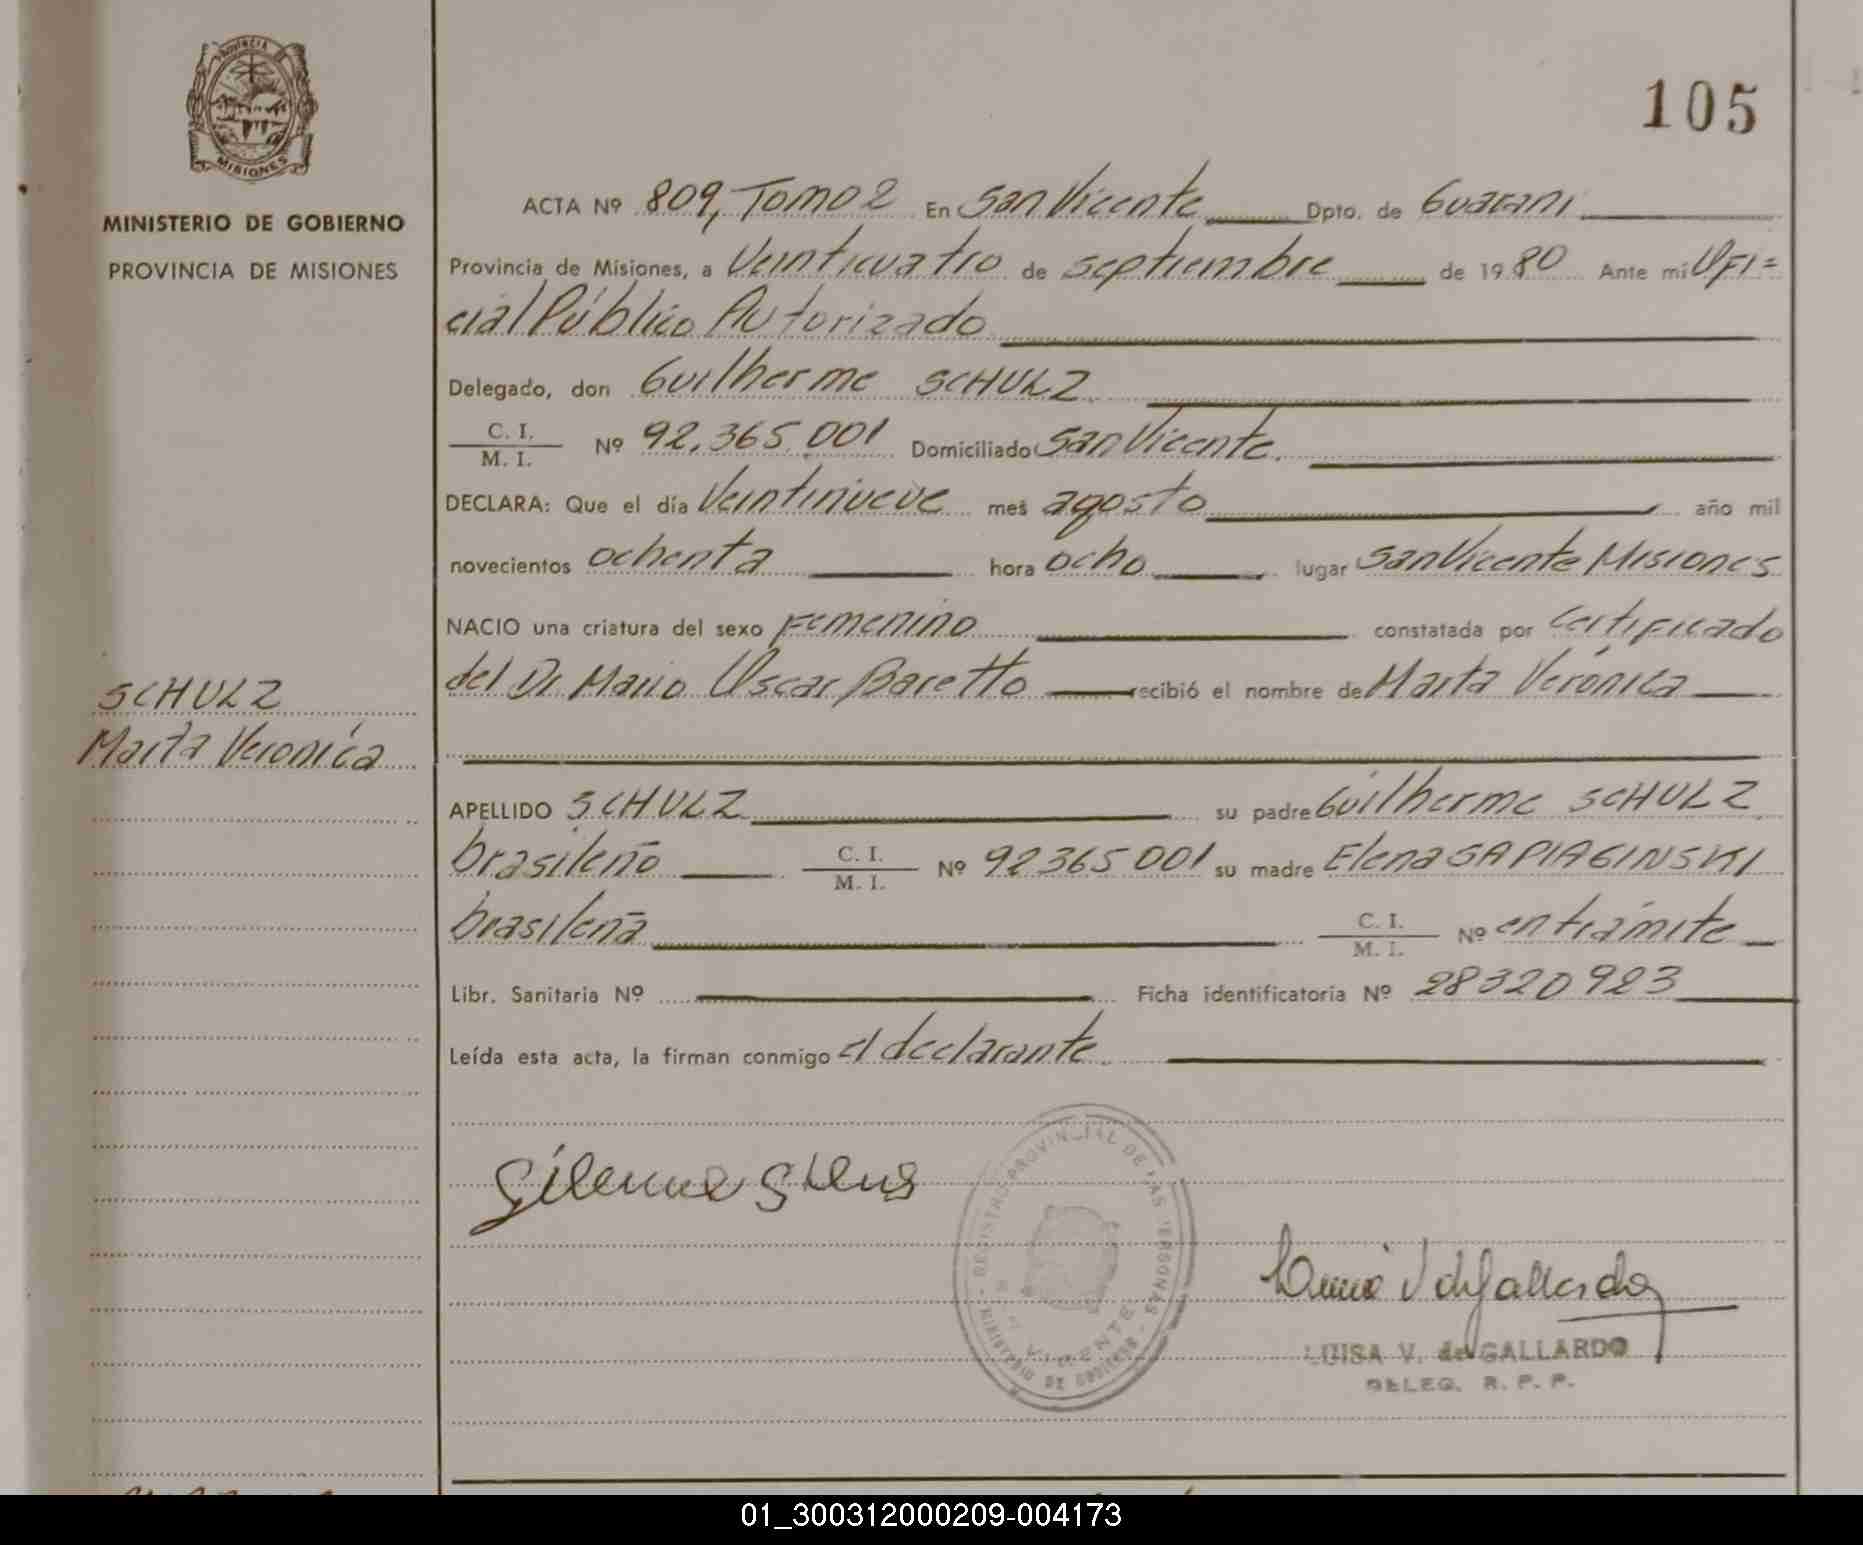 PROVINCIA DE
MISIONES
MINISTERIO DE GOBIERNO
PROVINCIA DE MISIONES
SCHULZ
Marta Veronica
105
ACTA Nº 809, Tomo 2 En San Vicente Dpto. de Guarani
Provincia de Misiones, a Veinticuatro de septiembre de 1980 Ante mi Ofi=
cial Público Autorizado
Delegado, don Guilherme SCHULZ.
C. I. / M. I. Nº 92.365.001 Domiciliado San Vicente.
DECLARA: Que el día Veintinueve mes agosto año mil
novecientos ochenta hora ocho lugar San Vicente Misiones
NACIO una criatura del sexo Femenino constatada por Certificado
del Dr. Mario Oscar Baretto recibió el nombre de Marta Verónica
APELLIDO SCHULZ su padre Guilherme SCHULZ
brasileño C. I. / M. I. Nº 92365001 su madre Elena SAPIAGINSKI
brasileña C. I. / M. I. Nº en trámite
Libr. Sanitaria Nº Ficha identificatoria Nº 28320923
Leída esta acta, la firman conmigo el declarante.
REGISTRO PROVINCIAL DE LAS PERSONAS
MINISTERIO DE GOBIERNO
VICENTE
LUISA V. de GALLARDO
DELEG. R. P. P.
01_300312000209-004173